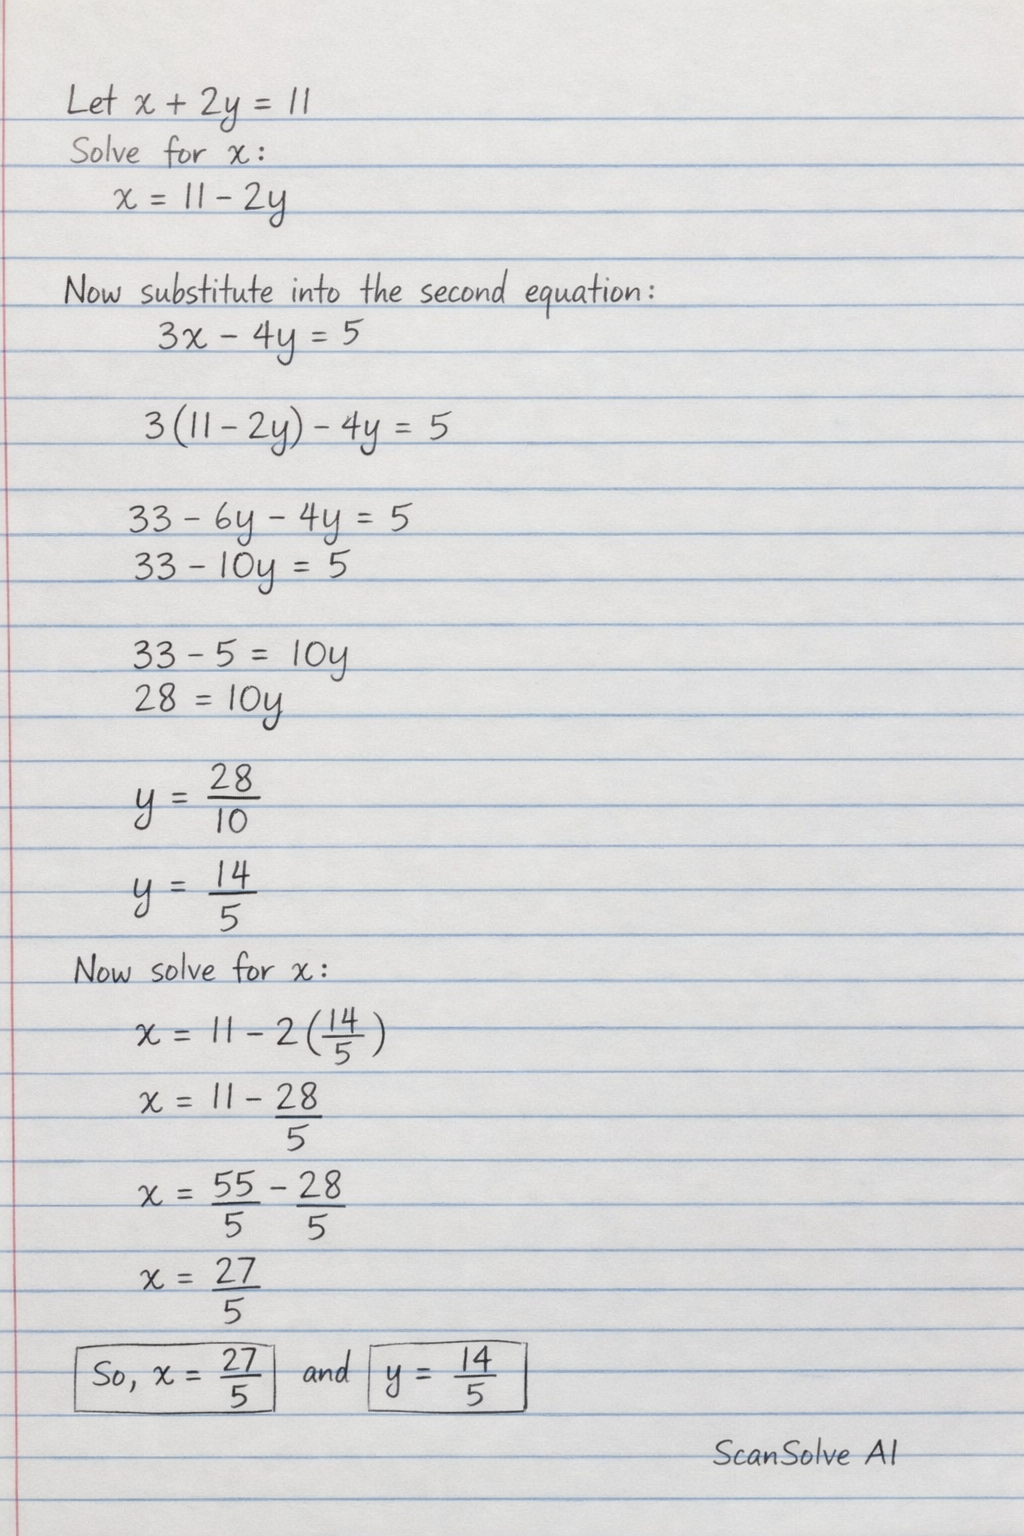 Let x + 2y = 11
Solve for x:
x = 11 - 2y
Now substitute into the second equation:
3x - 4y = 5
3(11 - 2y) - 4y = 5
33 - 6y - 4y = 5
33 - 10y = 5
33 - 5 = 10y
28 = 10y
y = 28/10
y = 14/5
Now solve for x:
x = 11 - 2(14/5)
x = 11 - 28/5
x = 55/5 - 28/5
x = 27/5
So, x = 27/5 and y = 14/5
ScanSolve AI